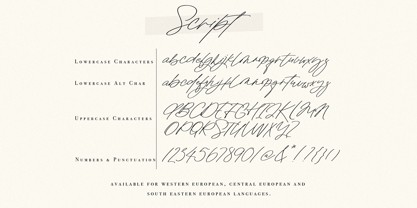 Script
LOWERCASE CHARACTERS abcdefghijklmnopqrstuvwxyz
LOWERCASE ALT CHAR abcdefghijklmnopqrstuvwxyz
UPPERCASE CHARACTERS ABCDEFGHIJKLMN
OPQRSTUVWXYZ
NUMBERS & PUNCTUATION 1234567890!@&"
AVAILABLE FOR WESTERN EUROPEAN, CENTRAL EUROPEAN AND
SOUTH EASTERN EUROPEAN LANGUAGES.